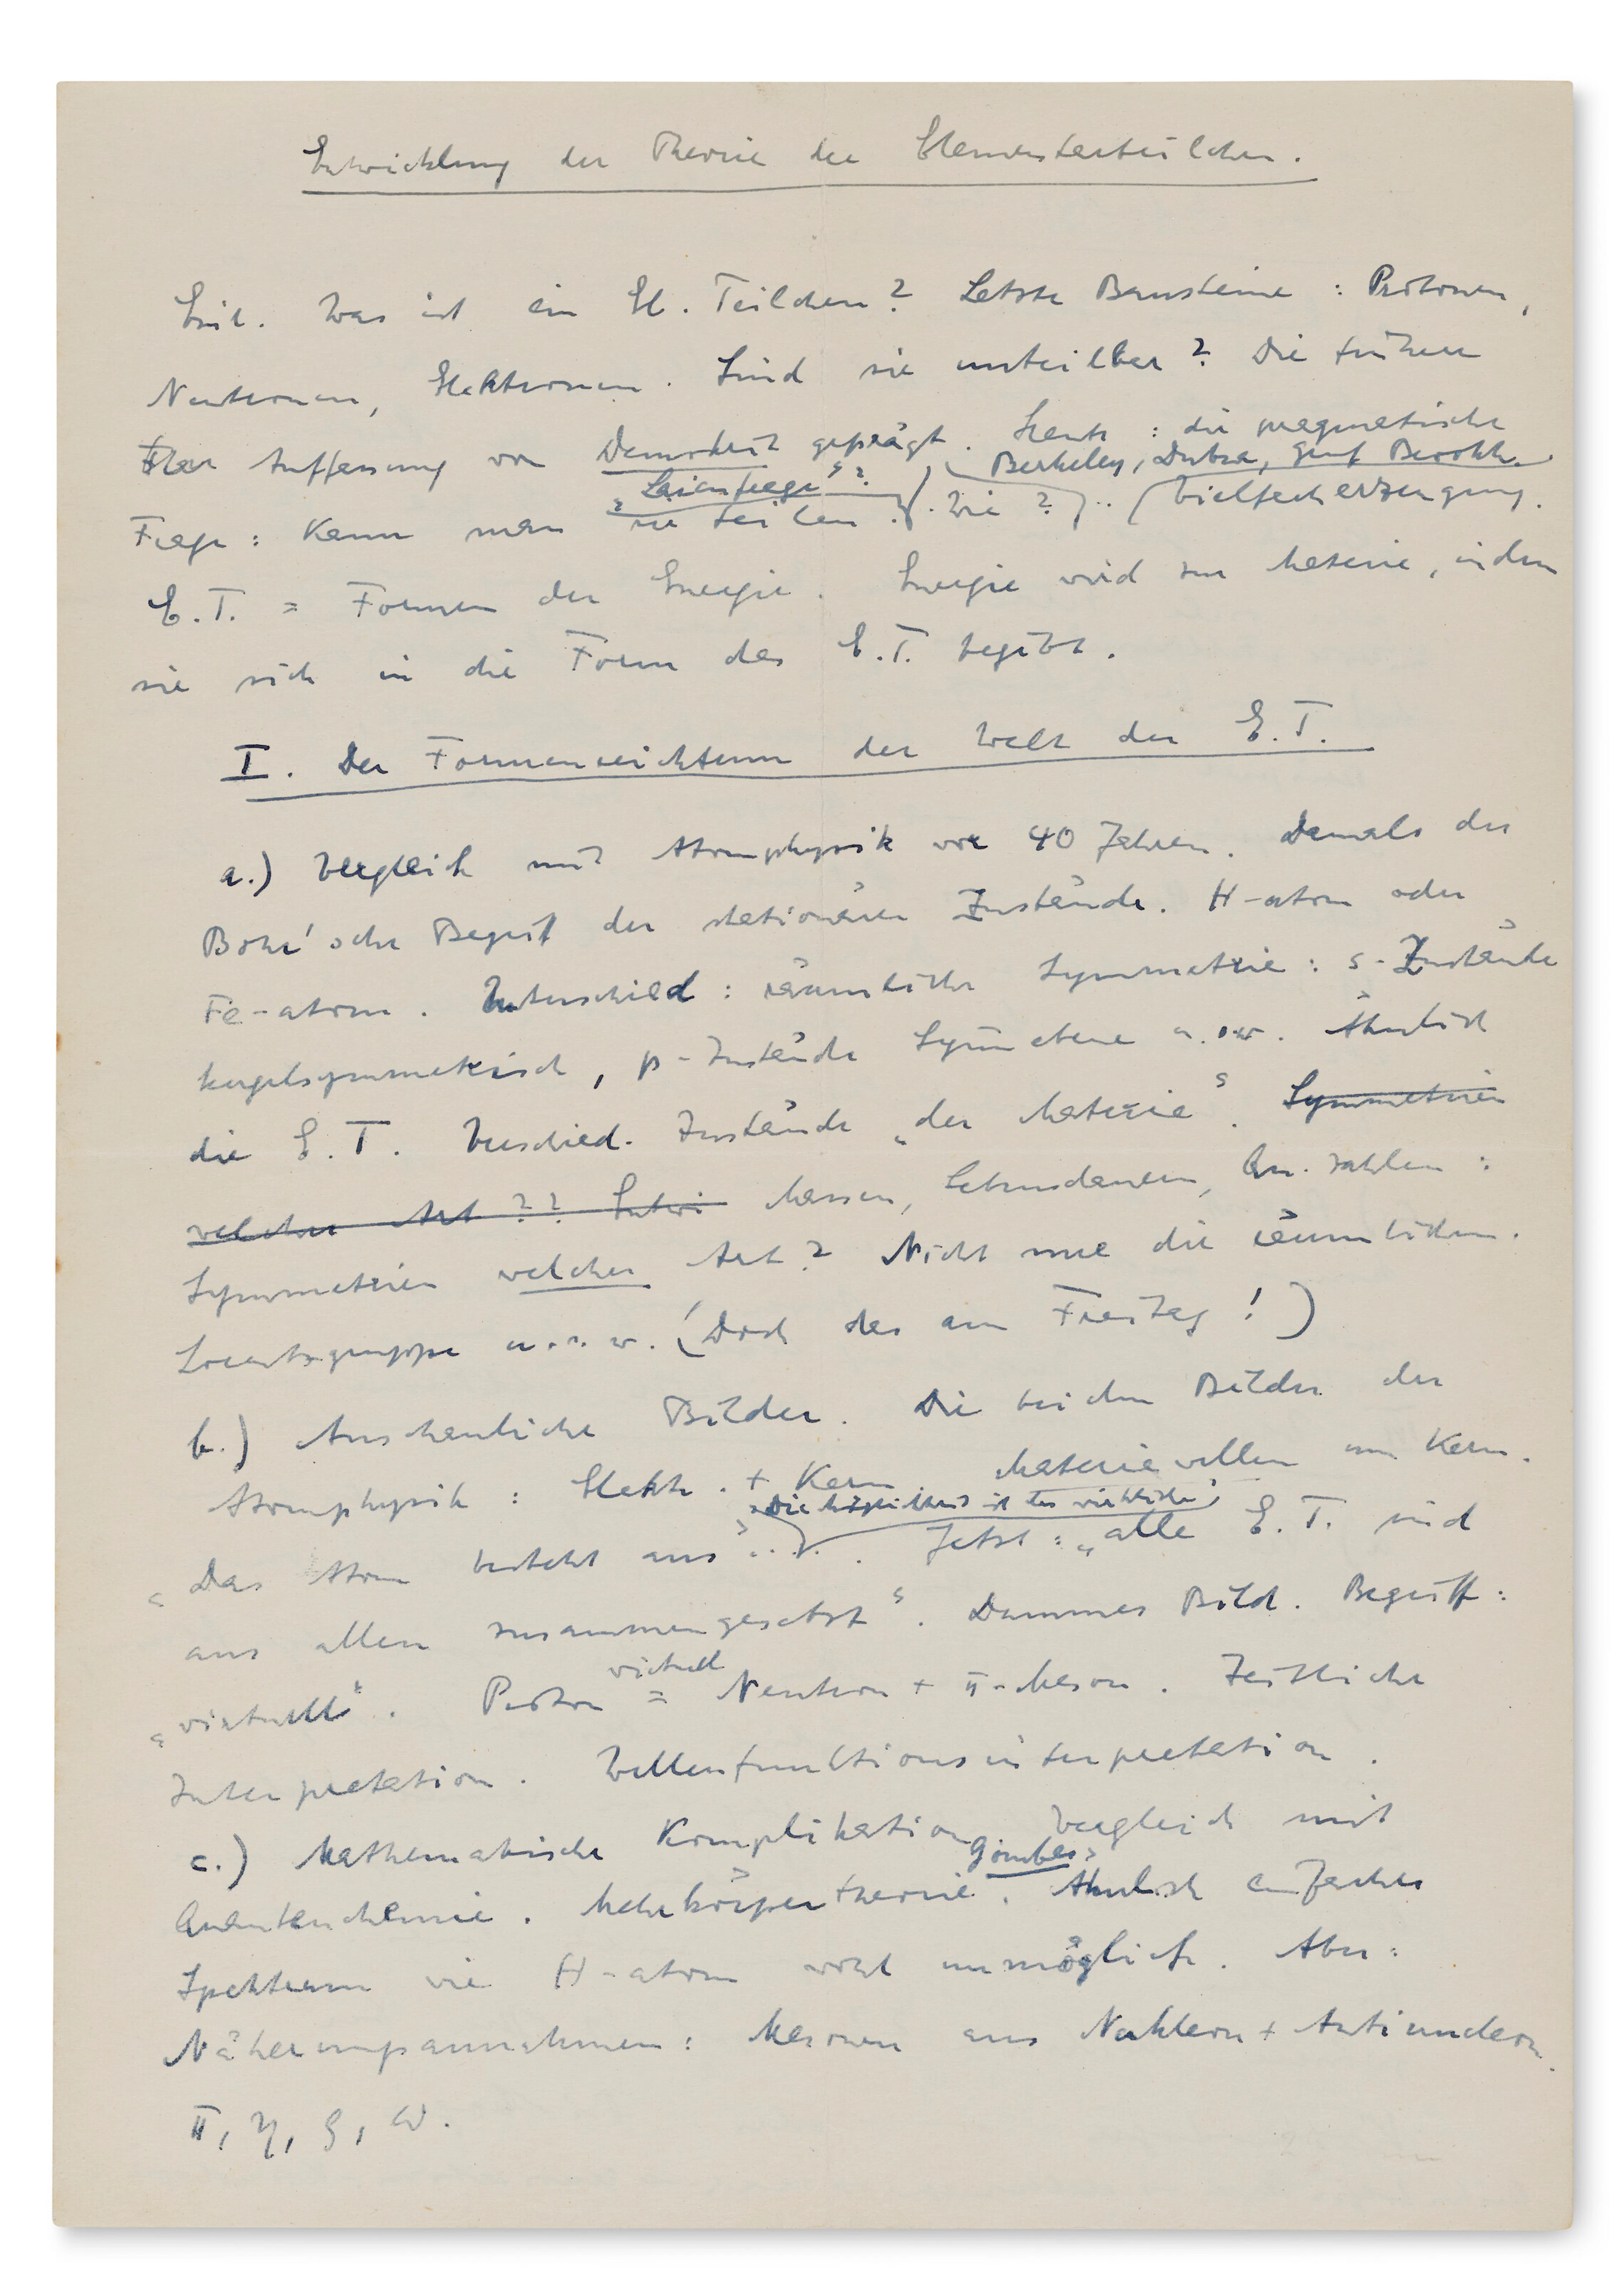 Entwicklung der Theorie der Elementarteilchen.
Einl. Was ist ein El. Teilchen? Letzte Bausteine: Protonen,
Neutronen, Elektronen. Sind sie unteilbar? Die frühere
Auffassung von Demokrit geprägt. Heute: die pragmatische
Berkeley, Dubna, Genf
"Laienfrage"?
Frage: Kann man sie teilen. Wie? .. (Vielfacherzeugung.
E.T. = Formen der Energie. Energie wird zur Materie, indem
sie sich in die Form des E.T. begibt.
I. Der Formenreichtum der Welt der E.T.
a.) Vergleich mit Atomphysik vor 40 Jahren. Damals der
Bohr'sche Begriff der stationären Zustände. H-atom oder
Fe-atom. Unterschied: räumliche Symmetrie: s-Zustände
kugelsymmetrisch, p-Zustände Symmebene u.s.w. Ähnlich
die E.T. Verschied. Zustände „der Materie“. Symmetrien
welcher Art?? Entwi Massen, Lebensdauern, Qu. zahlen:
Symmetrien welcher Art? Nicht nur die räumlichen.
Lorentzgruppe u.s.w. (Doch das am Freitag!)
b.) Anschauliche Bilder. Die beiden Bilder der
Atomphysik: Elektr. + Kern Materiewellen um Kern.
„Das Atom besteht aus“... Jetzt: „alle E.T. sind
aus allen zusammengesetzt“. Dummes Bild. Begriff:
virtuell
„virtuell“. Proton = Neutron + π-Meson. Zeitliche
Interpretation. Wellenfunktionsinterpretation.
c.) Mathematische Komplikation Vergleich mit
Gombas
Quantenchemie. Mehrkörpertheorie. Ähnlich einfaches
Spektrum wie H-atom wohl unmöglich. Aber:
Näherungsannahmen: Mesonen aus Nukleon + Antinucleon.
π, η, ρ, ω.